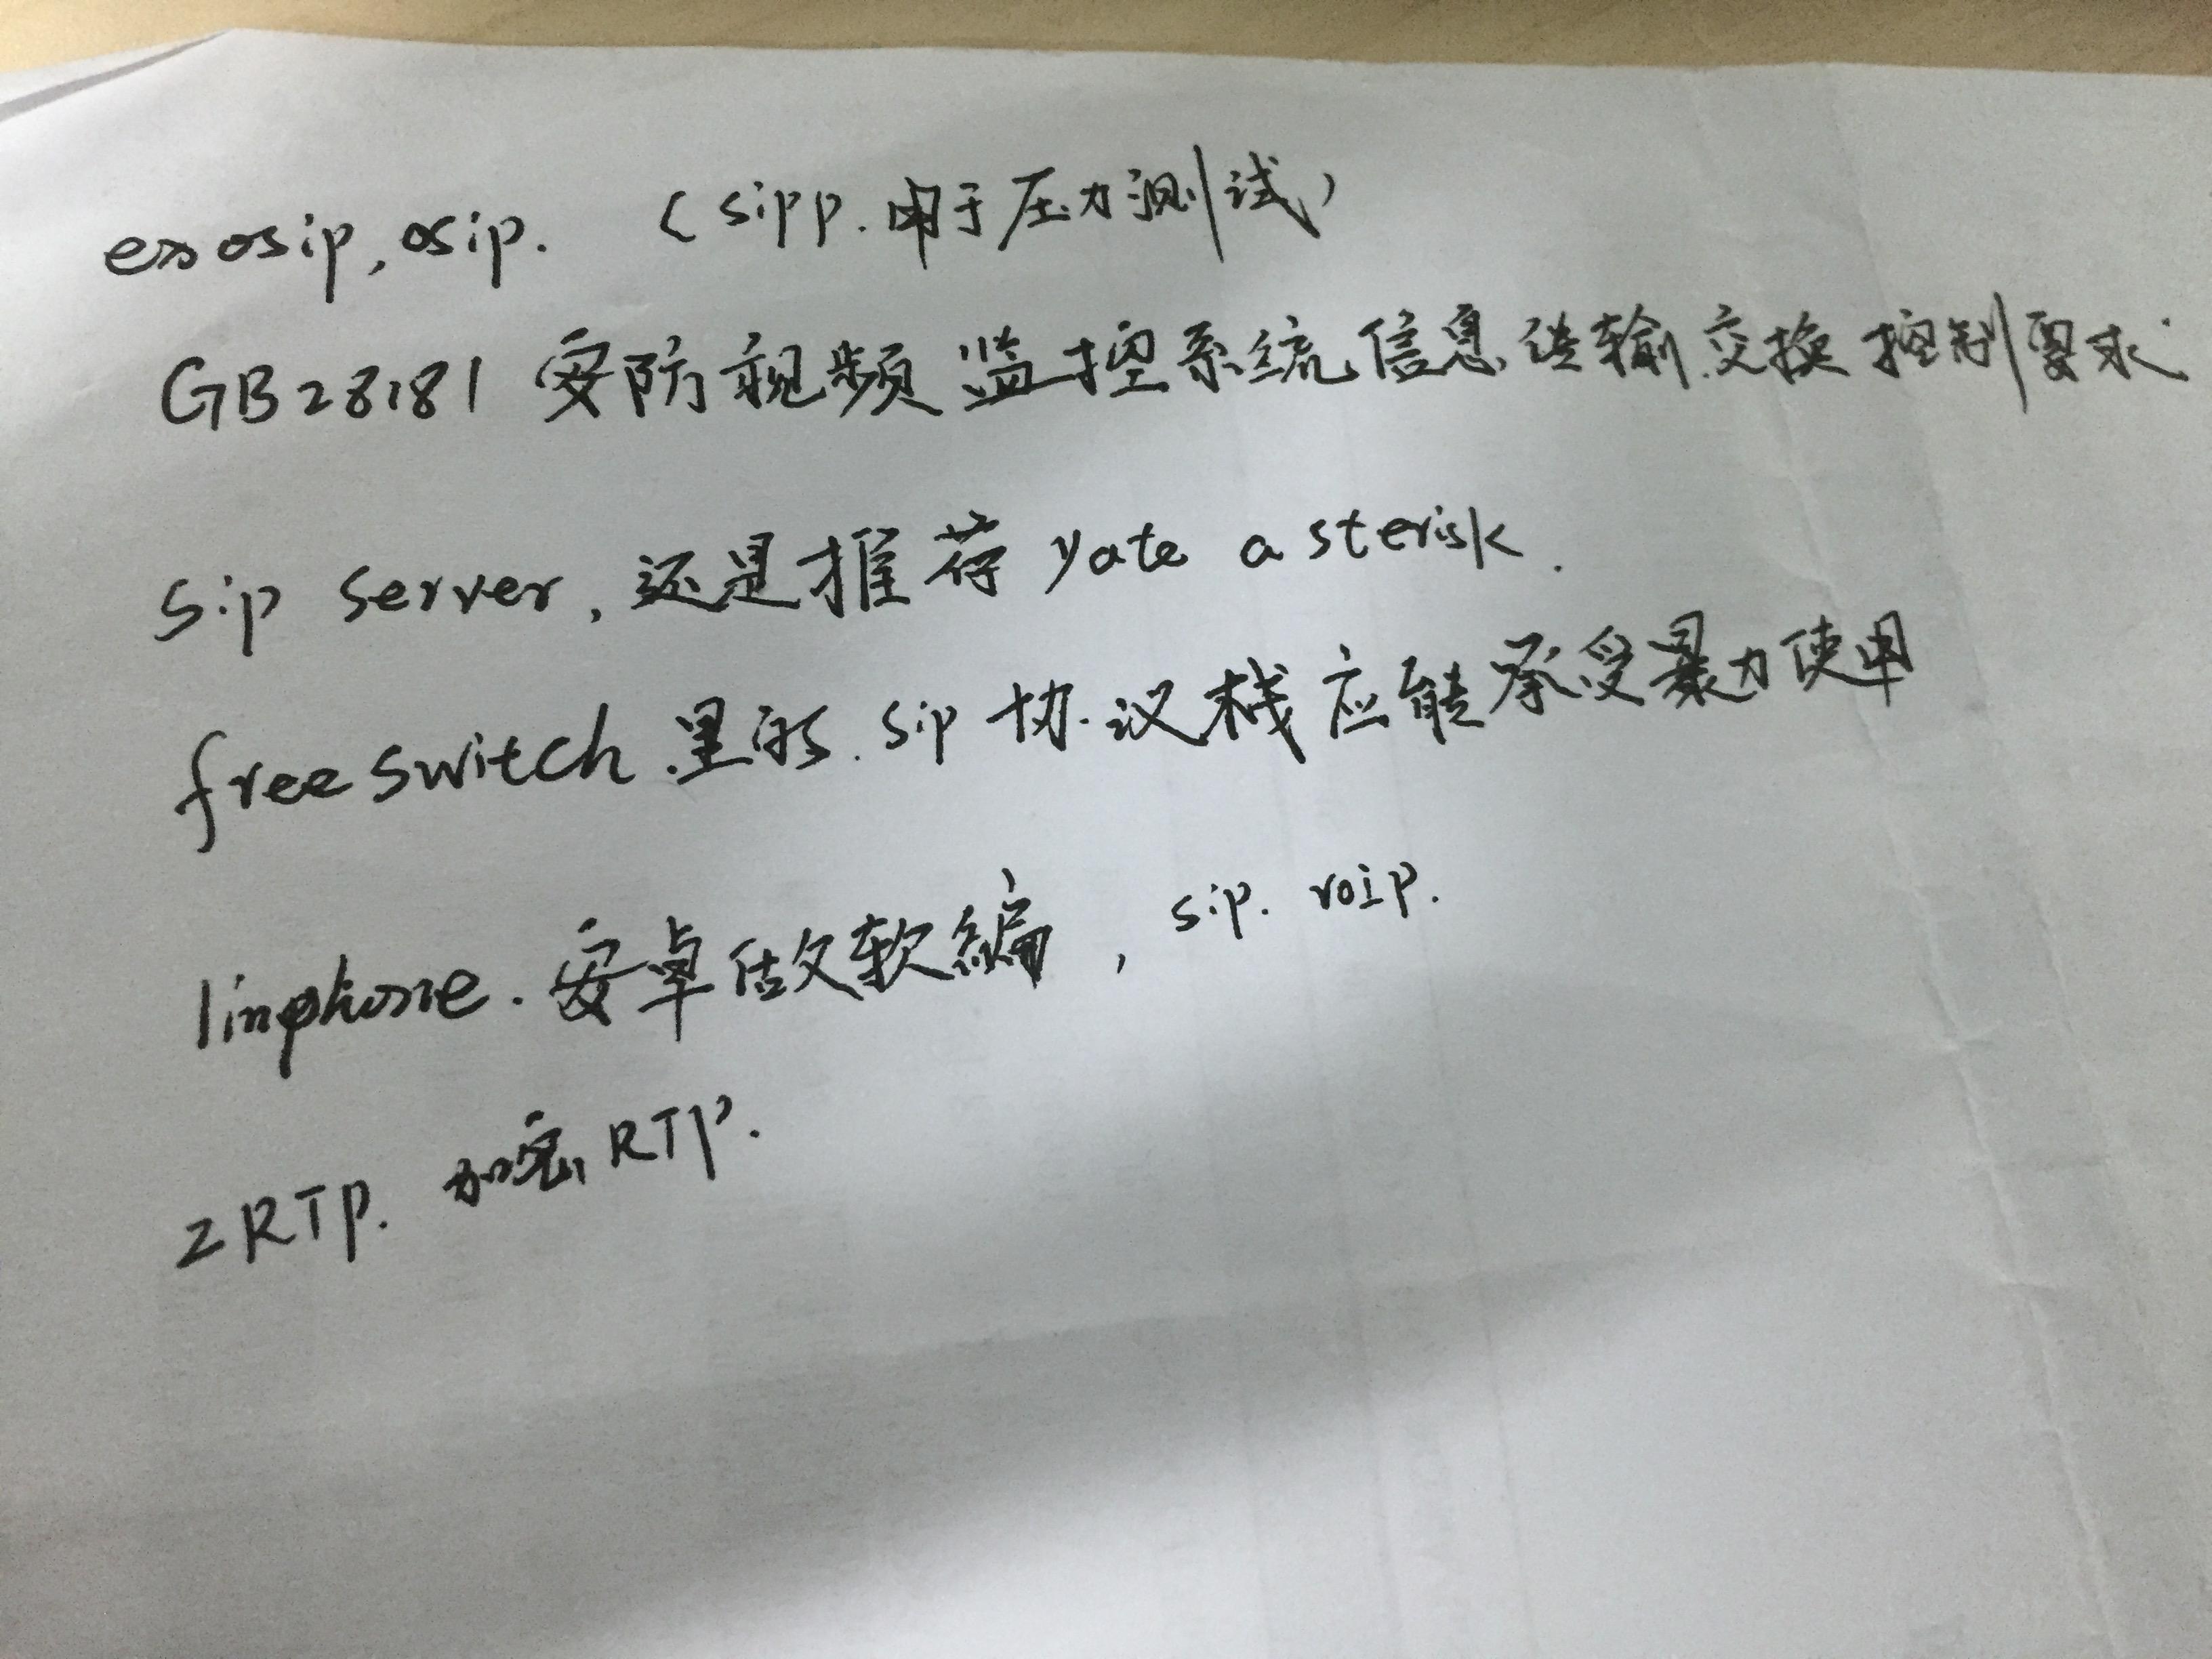 exosip, osip. (sipp. 用于压力测试)
GB28181 安防视频监控系统信息传输交换控制要求.
Sip server, 还是推荐 yate asterisk.
freeswitch 里的. sip 协议栈应能承受最力使用
linphone. 安卓版软编, sip. voip.
ZRTP. 加密 RTP.